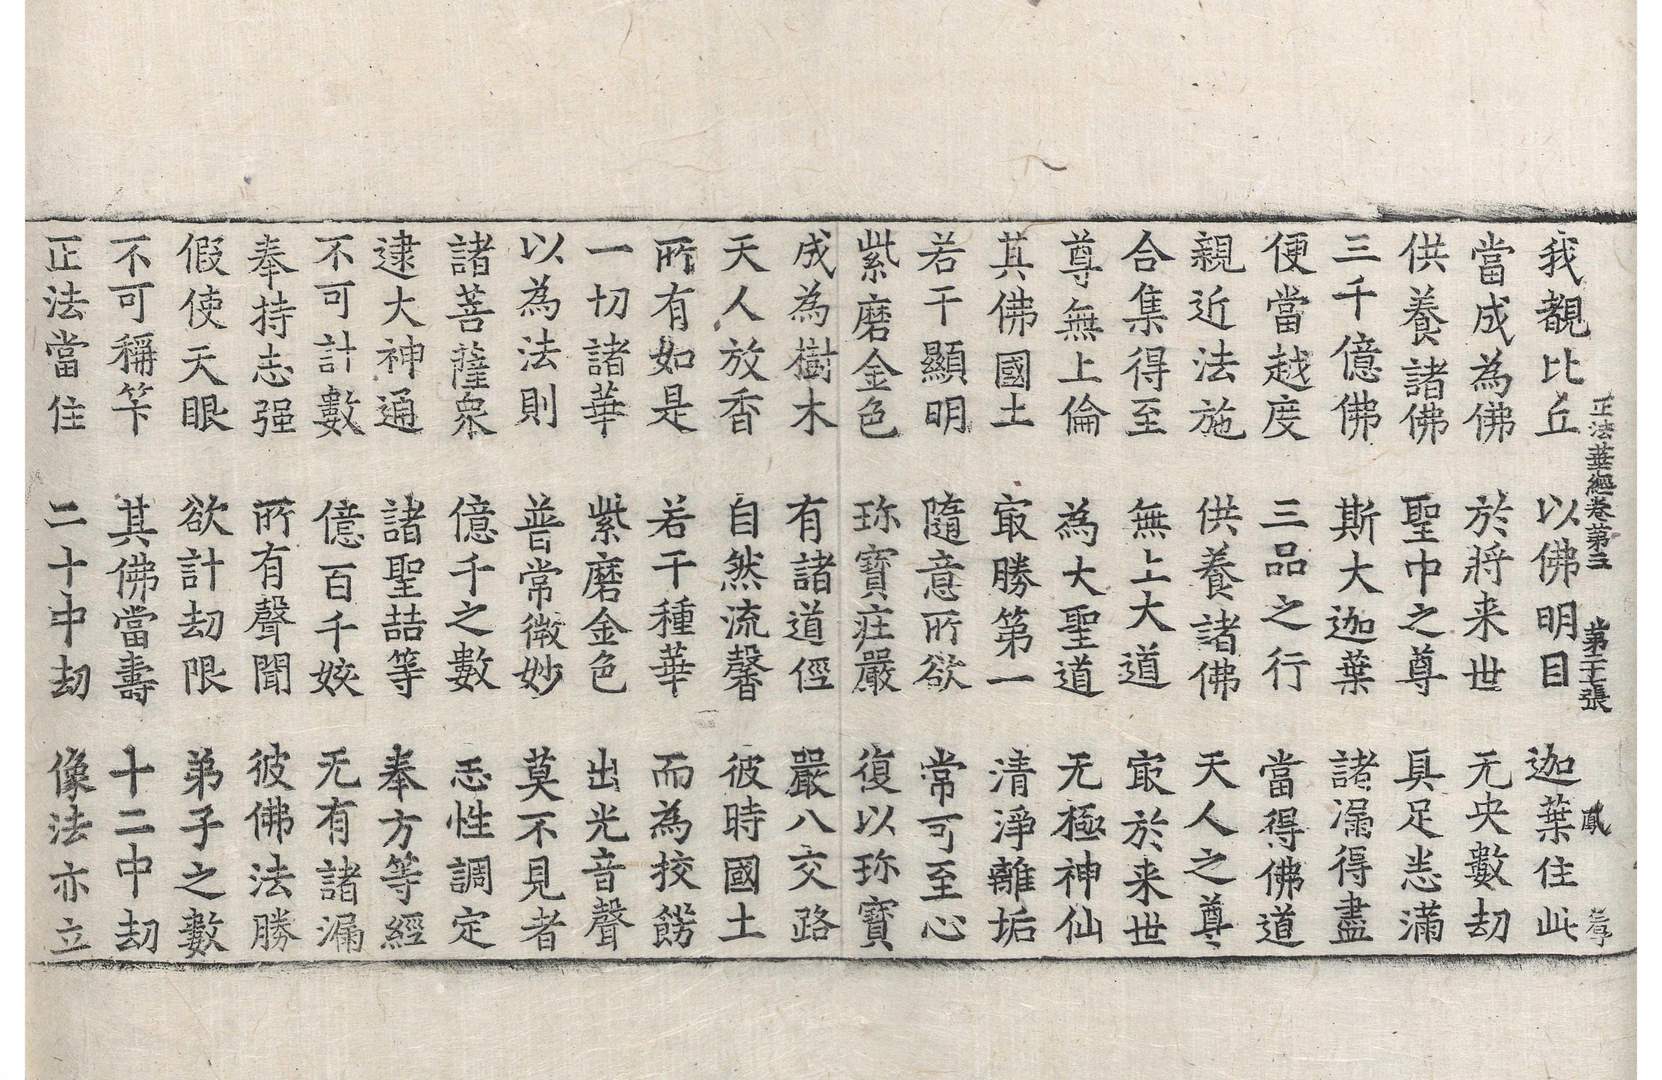 正法華經卷第三 第二十二張 鳳
我覩比丘 以佛明目 迦葉住此
當成為佛 於將来世 无央數劫
供養諸佛 聖中之尊 具足悉滿
三千億佛 斯大迦葉 諸漏得盡
便當越度 三品之行 當得佛道
親近法施 供養諸佛 天人之尊
合集得至 無上大道 㝡於来世
尊無上倫 為大聖道 无極神仙
其佛國土 㝡勝第一 清淨離垢
若干顯明 隨意所欲 常可至心
紫磨金色 珎寶莊嚴 復以珎寶
成為樹木 有諸道徑 嚴八交路
天人放香 自然流馨 彼時國土
所有如是 若干種華 而為挍餝
一切諸華 紫磨金色 出光音聲
以為法則 普常微妙 莫不見者
諸菩薩衆 億千之數 志性調定
逮大神通 諸聖喆等 奉方等經
不可計數 億百千姟 无有諸漏
奉持志强 所有聲聞 彼佛法勝
假使天眼 欲計劫限 弟子之數
不可稱竿 其佛當壽 十二中劫
正法當住 二十中劫 像法亦立